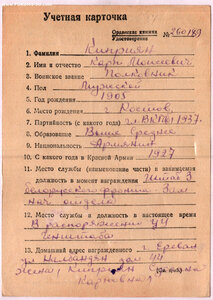 Учетная карточка
Орденская книжка
Удостоверение № 260189
1. Фамилия Киприян
2. Имя и отчество Карп Моисеевич
3. Воинское звание Полковник
4. Пол Мужской
5. Год рождения 1905
6. Место рождения г. Ростов
7. Партийность (с какого года) чл ВКП(б) 1937.
8. Образование Выше среднее
9. Национальность Армянин
10. С какого года в Красной Армии 1927
11. Место службы (наименование части) и занимаемая
должность в момент награждения Штаб 3
Белорусского фронта. Зам
нач отдела
12. Место службы и должность в настоящее время
В распоряжении УЧ
Генштаба
13. Домашний адрес награжденного г. Ереван
ул.
жена, Киприян
Карповна